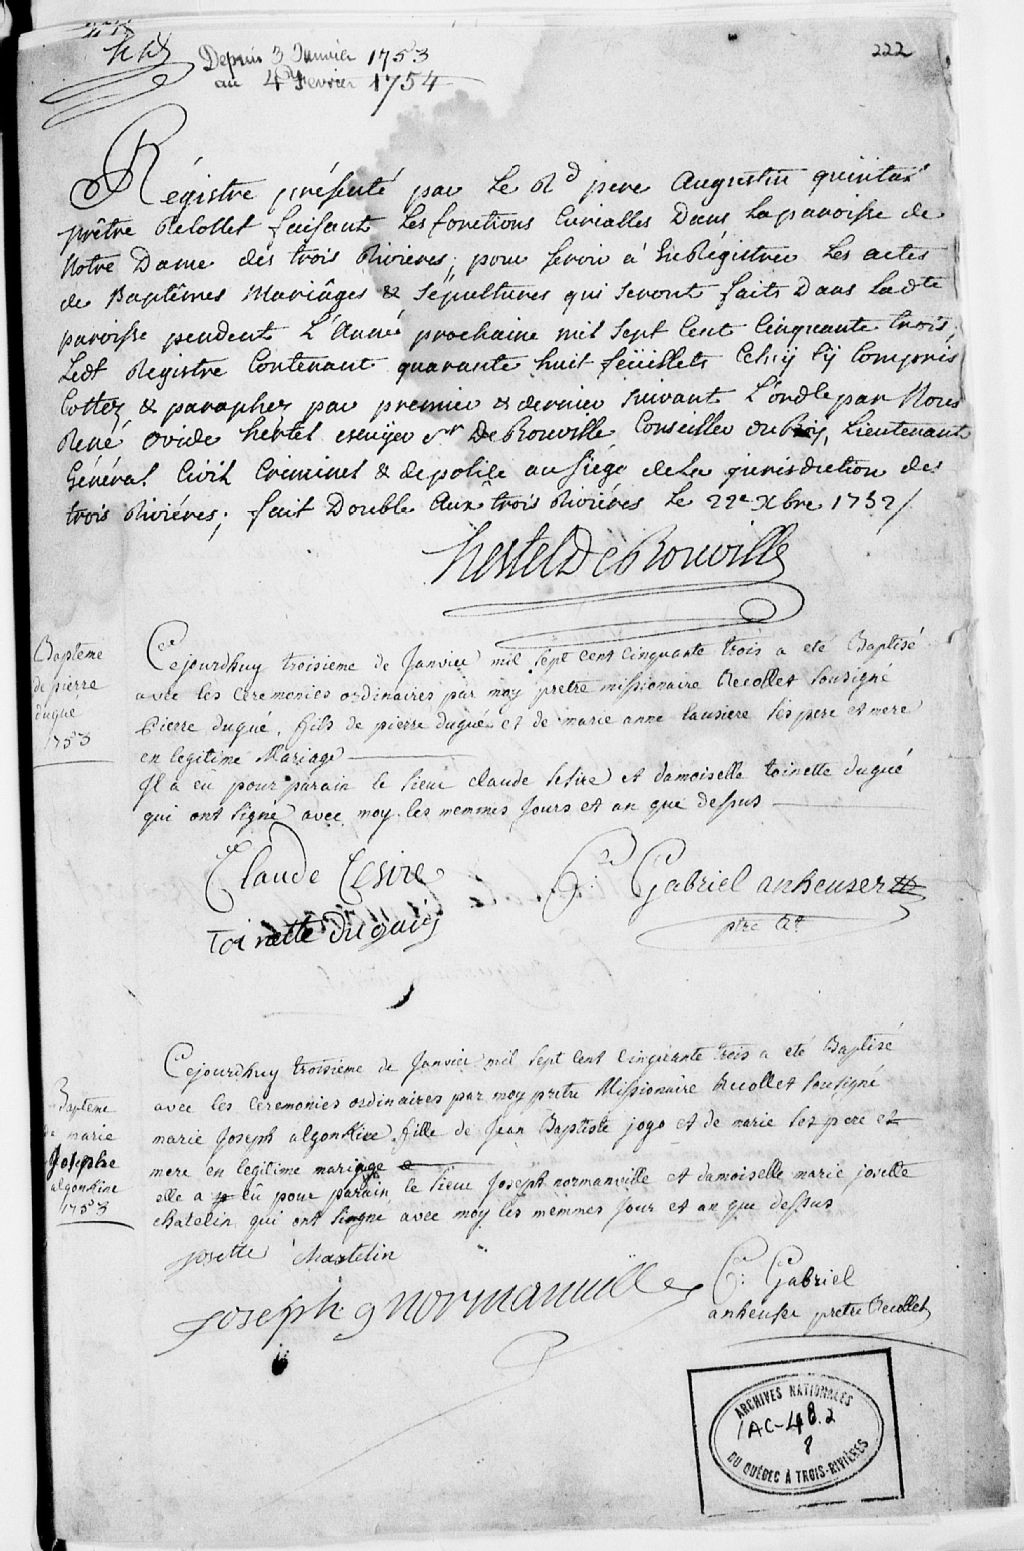 222
Depuis 3 Janvier 1753
au 4 Fevrier 1754
Régistre présenté par Le Rd pere Augustin quintal
prêtre Recollet faisant Les fonctions Curialles Dans La paroisse de
Notre Dame des trois Rivieres; pour servir à EnRégistrer Les actes
de Baptêmes Mariâges & Sépultures qui seront faits Dans Ladte
paroisse pendent L'Année prochaine mil sept Cent Cinquante trois
Ledt Régistre Contenant quarante huit feüillets Celuy Cy Compris
Cottez & paraphez par premier & dernier suivant L'ord[ce] par Nous
René Ovide hertel escuyer Sr De Rouville Conseiller du Roy, Lieutenant
Général Civil Criminel & de police au siége de La jurisdiction des
trois Riviéres; fait Double Aux trois Riviéres Le 22e Xbre 1752/
hertel De Rouville
Baptême
de pierre
dugué
1753
Cejourdhuy troisieme de Janvier mil sept cent cinquante trois a eté Baptisé
avec les Ceremonies ordinaires par moy pretre missionaire Recollet Sousigné
Pierre dugué, fils de pierre dugué et de marie anne lausiere ses pere et mere
en legitime Mariage
Il a eü pour parain le sieur claude Lesire et damoiselle toinette dugué
qui ont signé avec moy les memmes Jours et an que dessus
Claude Lesire
fr: Gabriel anheuser
toinette duguis
ptre Rt
Bapteme
de marie
Josephe
algonkine
1753
Cejourdhuy troisieme de Janvier mil sept cent cinquante trois a eté Baptisé
avec les ceremonies ordinaires par moy pretre Missionaire Recollet sousigné
marie Joseph algonkine fille de Jean Baptiste jogo et de marie ses pere et
mere en legitime mariage
elle a eü pour parain le sieur Joseph normanville et damoiselle marie josette
chatelin qui ont singné avec moy les memmes Jour et an que dessus
josette Chastelin
fr: Gabriel
joseph normanuille
anheuser pretre Recollet
ARCHIVES NATIONALES
1AC-48.2
8
DU QUÉBEC À TROIS-RIVIÈRES